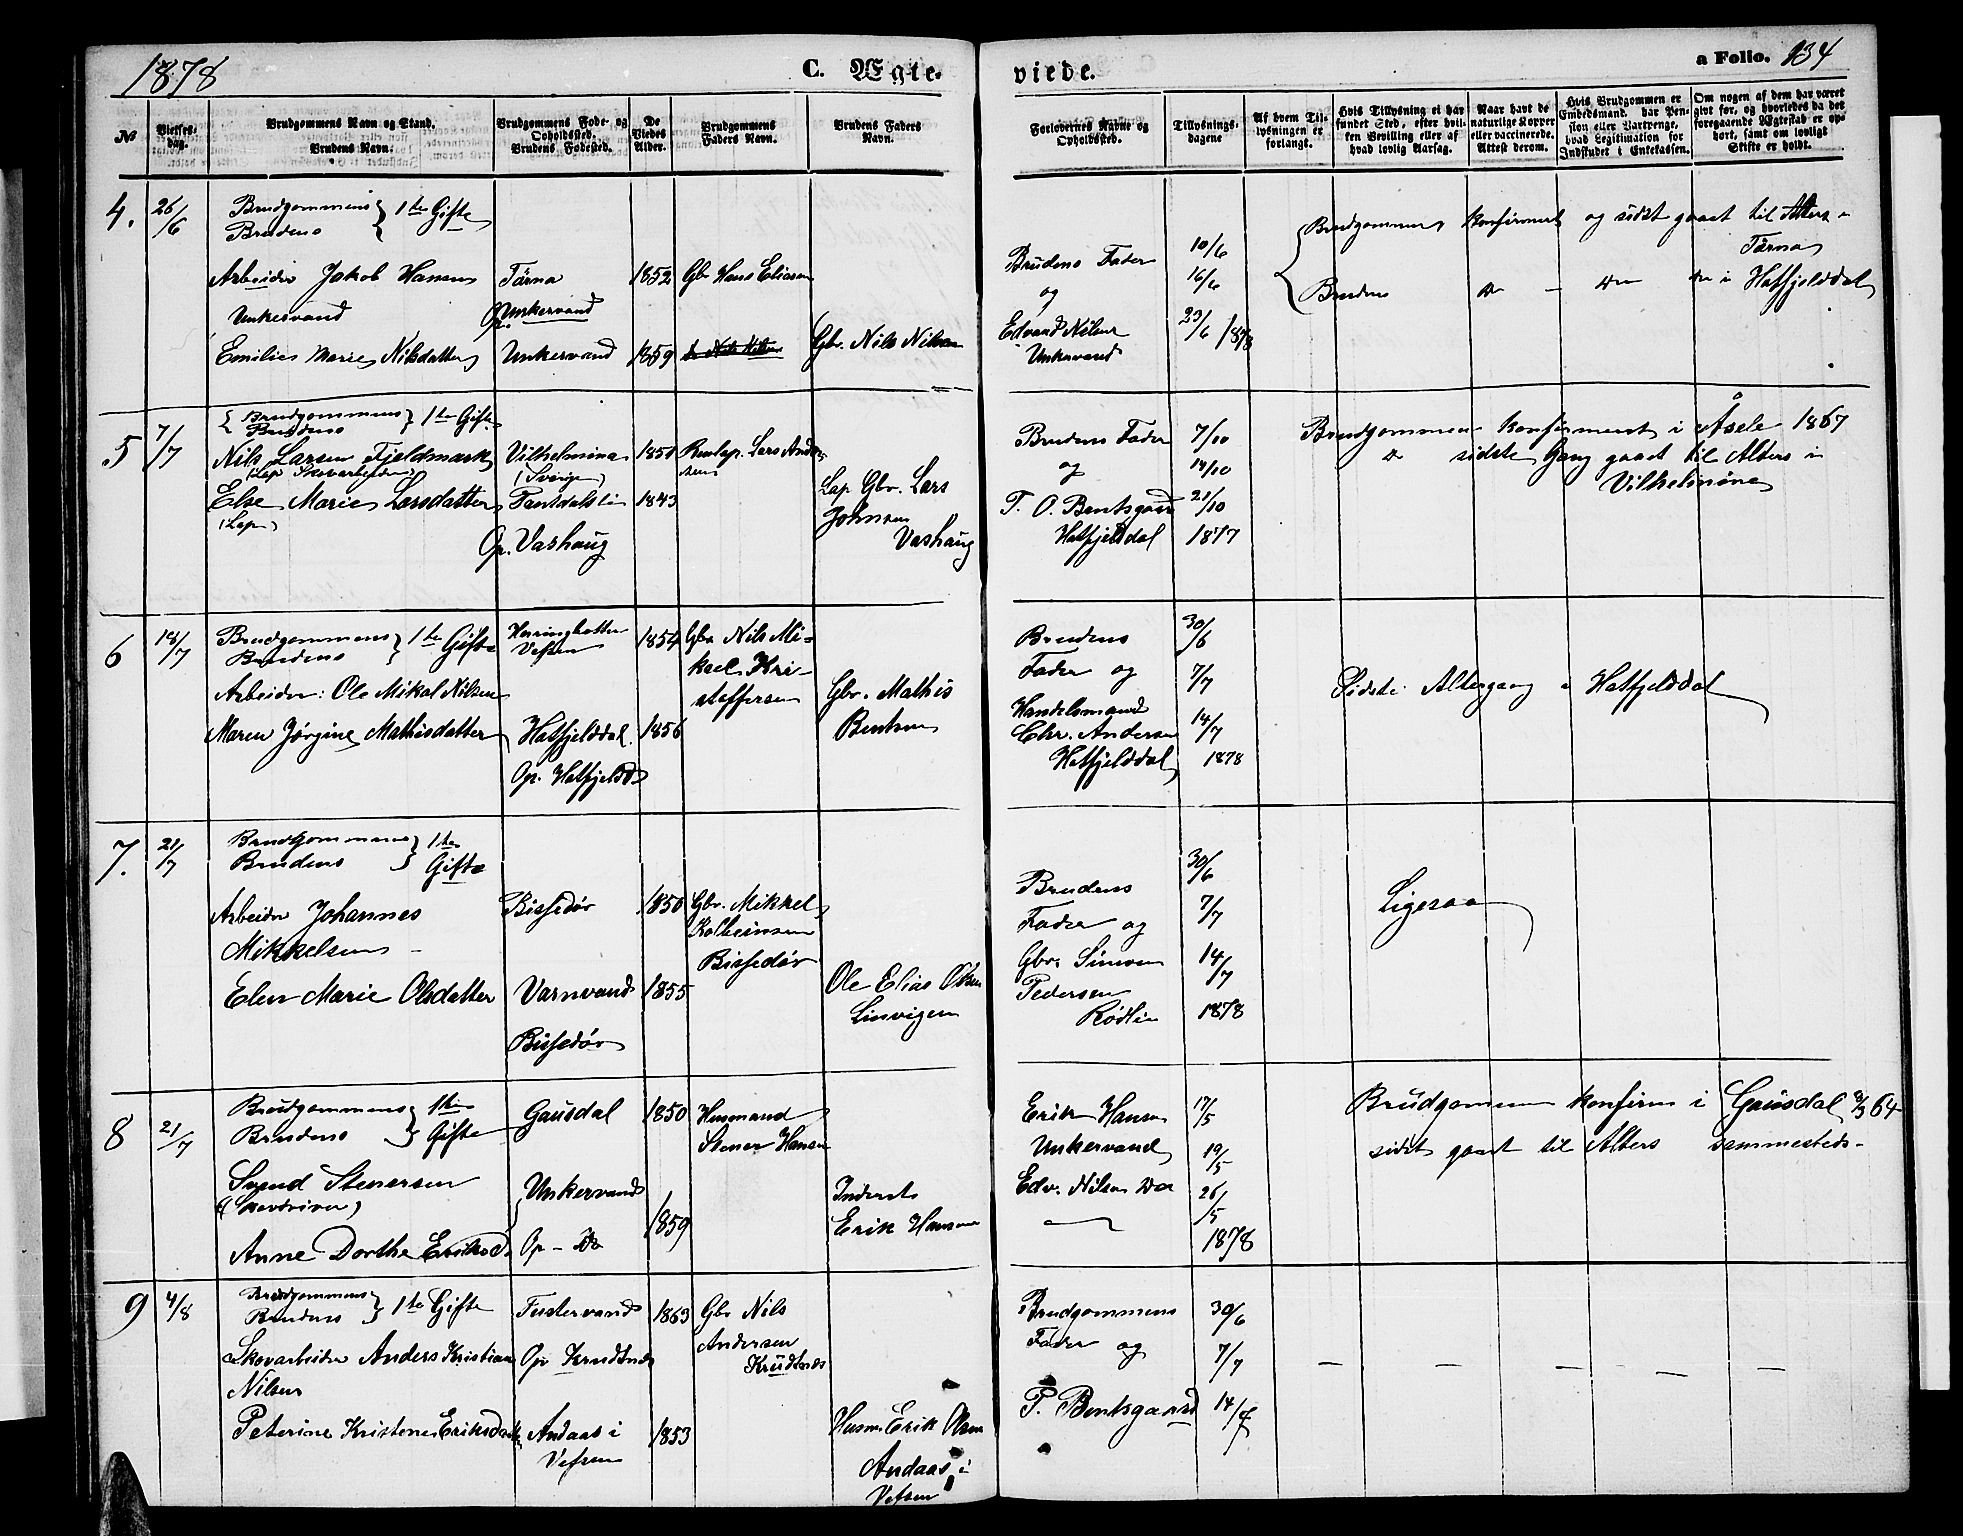 1878
C. Ægte-
viede.
a Folio. 134
No
Vielses-
dag.
Brudgommens Navn og Stand.
Brudens Navn.
Brudgommens Føde- og
Opholdssted.
Brudens Fødested.
De
Viedes
Alder.
Brudgommens
Faders Navn.
Brudens Faders
Navn.
Forlovernes Navne og
Opholdssted.
Tillysnings-
dagene
Af hvem Til-
lysningen er
forlangt.
Hvis Tillysning ei har
fundet Sted, efter hvil-
ken Bevilling eller af
hvad lovlig Aarsag.
Naar havt de
naturlige Kopper
eller vaccinerede.
Attest derom.
Hvis Brudgommen er
Embedsmand, har Pen-
sion eller Vartpenge,
hvad Legitimation for
Indskudet i Enkekassen.
Om nogen af dem har været
gift før, og hvorledes da det
foregaaende Ægteskab er op-
hørt, samt om lovligt
Skifte er holdt.
4. 26/6
Brudgommens } 1ste Gifte
Brudens
Arbeider Jakob Hansen
Unkervand
Tärna
Op. Unkervand
1852
Gbr Hans Eliasen
Emilie Marie Nilsdatter
Unkervand
1859
Gbr. Nils Nilsen
Brudens Fader
og
Edvard Nilsen
Unkervand
10/6
16/6
23/6 1878
Brudgommen konfirmert og sidst gaaet til Alters i
Tärna
Brudens do - do do i Hatfjelddal
5 7/7
Brudgommens } 1ste Gifte
Brudens
Nils Larsen Fjeldmark
(Lap Skovarbeider)
Vilhelmina
(Sverige)
1850
Renlap. Lars Ander
sen
Else Marie Larsdatter
(Lap)
1843
Op. Vashaug
Lap Gbr. Lars
Johnsen
Vashaug
Brudens Fader
og
T. O. Bentsgaard
Hatfjelddal
7/10
14/10
21/10
1877
Brudgommen konfirmert i Åsele 1867
do sidste Gang gaaet til Alters i
Vilhelmina
6 18/7
Brudgommens } 1ste Gifte
Brudens
Vefsen
1854
Gbr Nils Mi-
kael Kri-
stoffersen
Arbeider: Ole Mikal Nilsen
Maren Jørgine Mathisdatter
Hatfjelddal.
1856
Op. Hatfjeldd
Gbr. Mathis
Bentsen
Brudens
Fader og
Handelsmand
Chr. Andersen
Hatfjelddal
30/6
7/7
14/7
1878
Sidste Altergang i Hatfjelddal
7. 21/7
Brudgommens } 1ste
Brudens Gifte
Arbeider Johannes
Mikkelsen
Bissedør
1850
Gbr. Mikkel
Kolbeinsen
Bissedør
Elen Marie Olsdatter
Varnvand
1855
Bissedør
Ole Elias Olsen
Linvigen
Brudens
Fader og
Gbr. Simon
Pedersen
Rödli
30/6
7/7
14/7
1878
Ligesaa
8 21/7
Brudgommens } 1ste
Brudens Gifte
Svend Stenersen
(Skovdriver)
Gausdal
1850
Husmand
Stener Hansen
Anne Dorthe Eriksd
Unkervand
Op - do
1859
Inderst
Erik Hansen
Erik Hansen
Unkervand
Edv. Nilsen do
17/5
19/5
26/5
1878
Brudgommen konfirm i Gausdal 64
sidst gaaet til Alters sammesteds-
9 4/8
Brudgommens } 1ste Gifte
Brudens
Skovarbeider Anders Kristian
Nilsen
Fustervand
Op Krudtnæs
1863
Gbr Nils
Andersen
Krudtnæs
Peterine Kristene Eriksdatter
Andaas i
Vefsen
1853
Husm. Erik Olsen
Andaas i
Vefsen
Brudgommens
Fader og
P. Bentsgaard
30/6
7/7
14/7
- - - - -